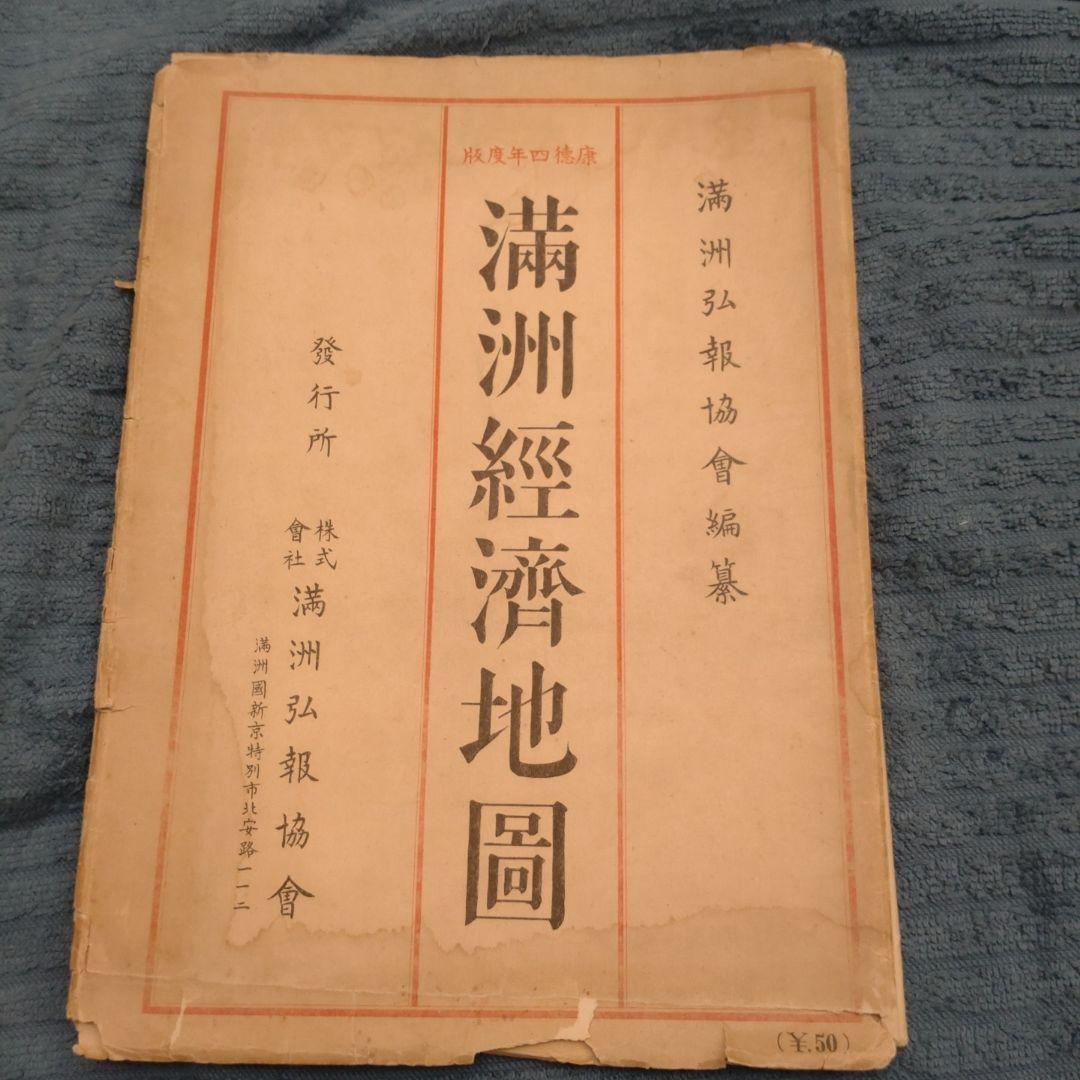 滿洲弘報協會編纂
康德四年度版
滿洲經濟地圖
發行所 株式會社 滿洲弘報協會
滿洲國新京特別市北安路一一二
(¥.50)